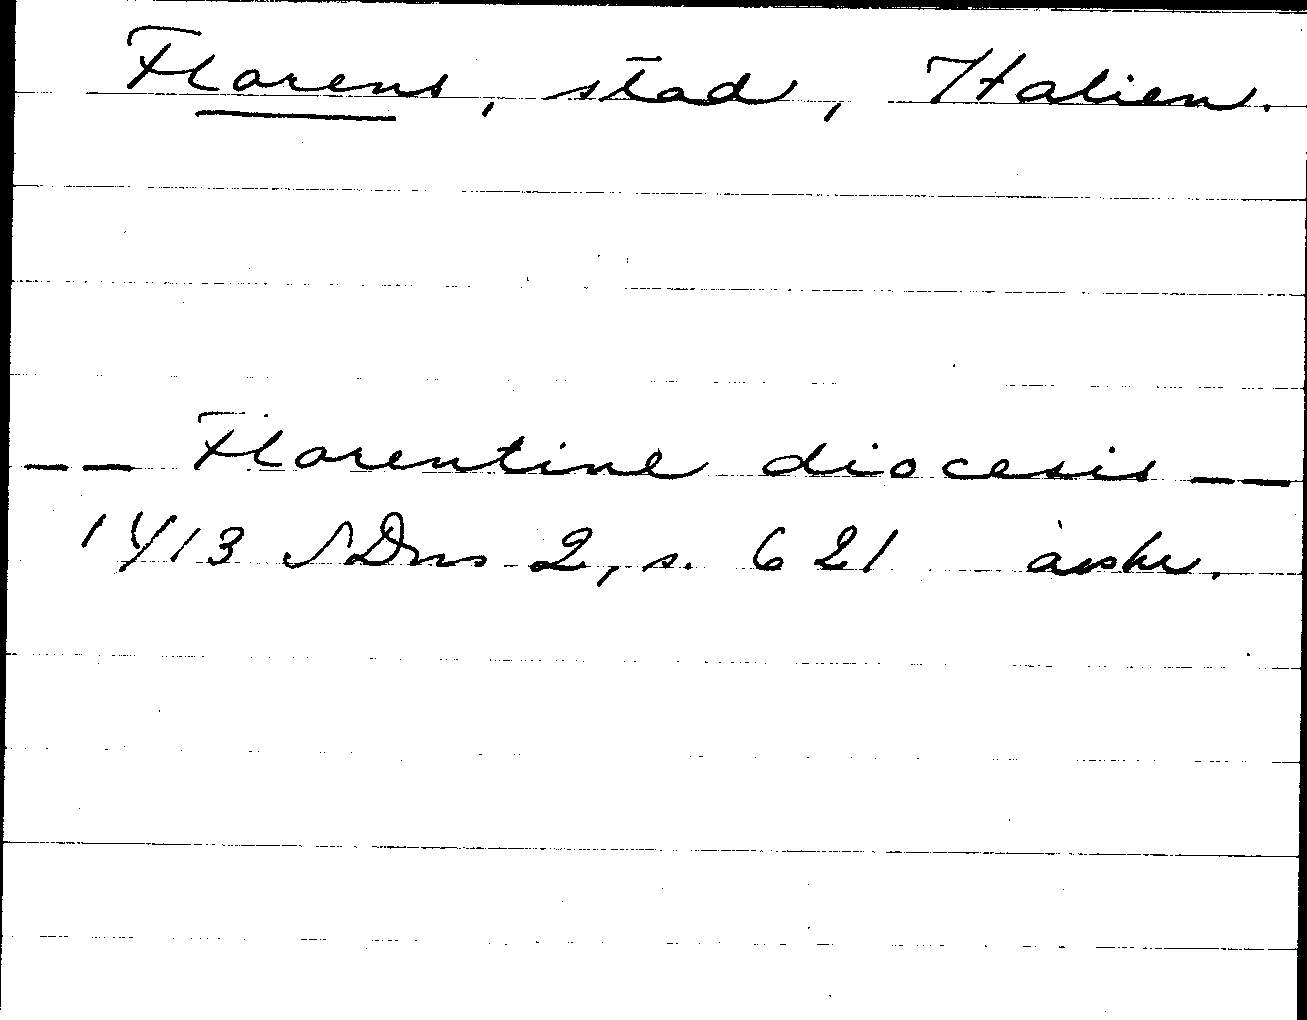 Florens, stad, Italien.
-- Florentine diocesis --
1413 SDns 2, s. 621 avskr.